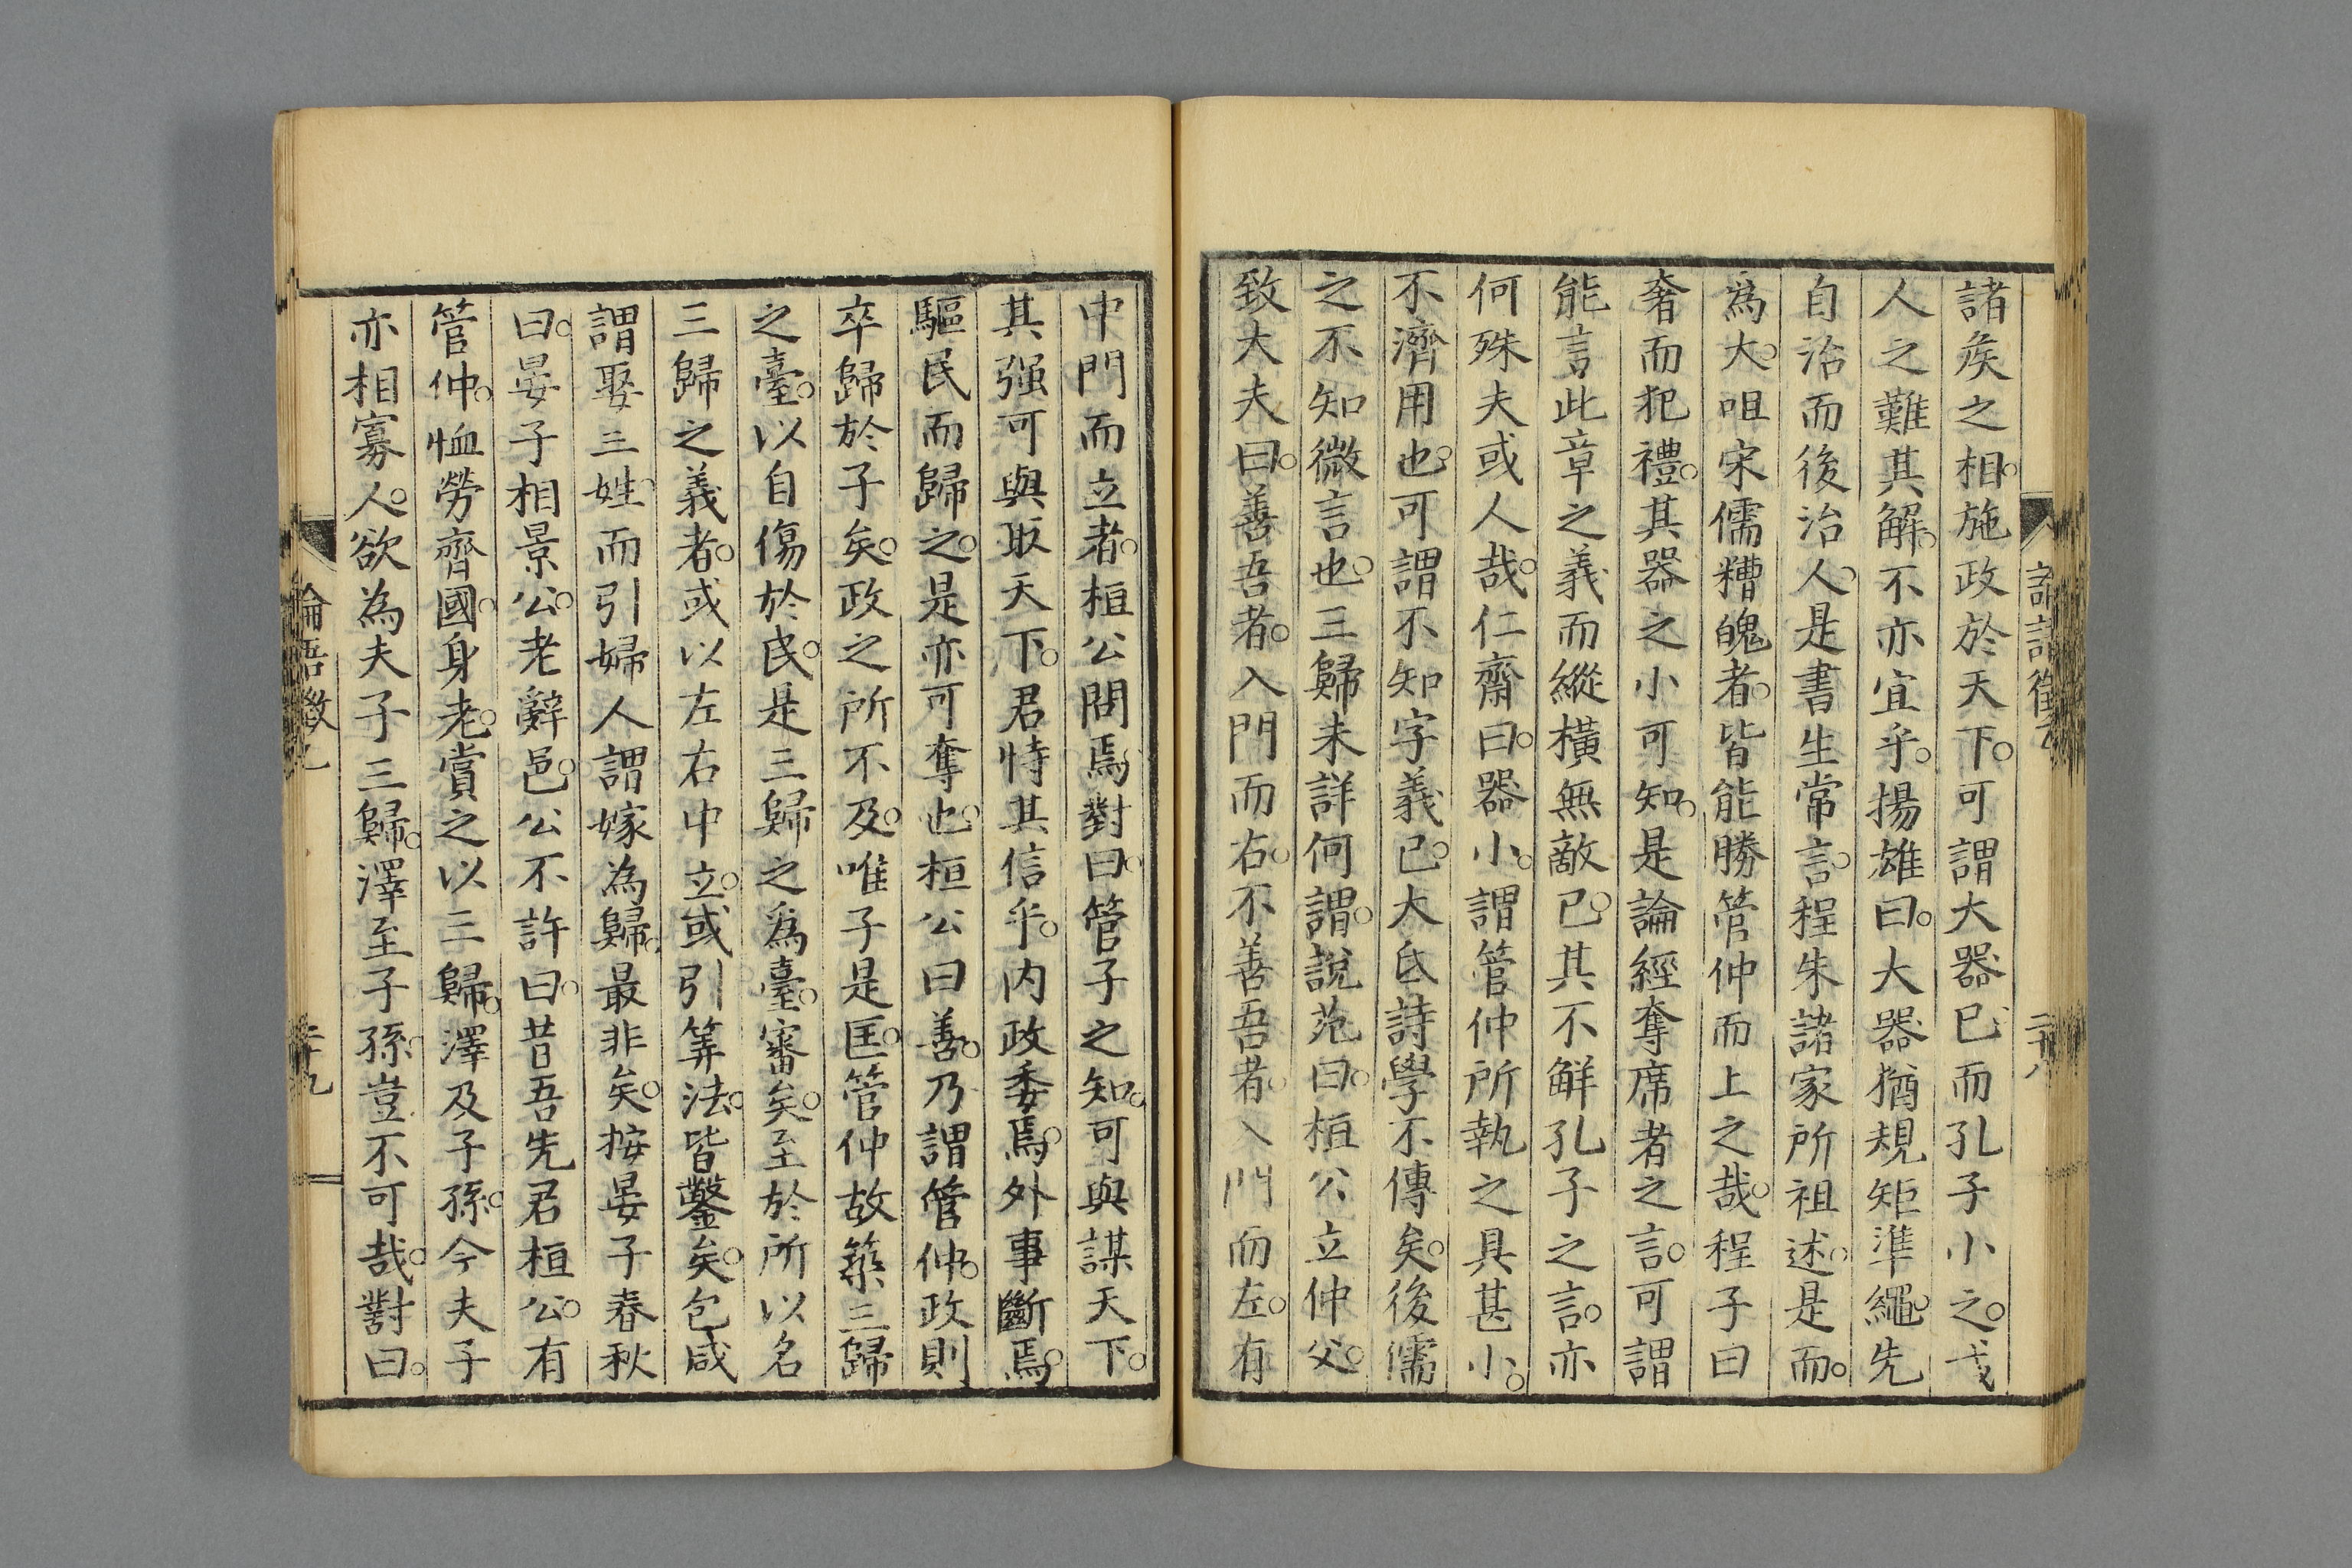 諸矦之相。施政於天下。可謂大器已而孔子小之。
人之難其解。不亦宜乎。揚雄曰。大器猶規矩準繩。先
自治而後治人。是書生常言。程朱諸家所祖述。是而。
爲大。咀宋儒糟魄者。皆能勝管仲而上之哉。程子曰
奢而犯禮。其器之小可知。是論經奪席者之言。可謂
能言此章之義而縱橫無敵已。其不鮮孔子之言。亦
何殊夫或人哉。仁齋曰。器小。謂管仲所執之具甚小。
不濟用也。可謂不知字義已。大氐詩學不傳矣。後儒
之不知微言也。三歸未詳何謂。說苑曰。桓公立仲父。
致大夫曰。善吾者。入門而右。不善吾者。入門而左。有
二十八
中門而立者。桓公問焉。對曰。管子之知。可與謀天下。
其强可與取天下。君恃其信乎。内政委焉。外事斷焉。
驅民而歸之。是亦可奪也。桓公曰善。乃謂管仲。政則
卒歸於子矣。政之所不及。唯子是匡。管仲故築三歸
之臺。以自傷於民。是三歸之爲臺。審矣。至於所以名
三歸之義者。或以左右中立。或引筭法。皆鑿矣。包咸
謂娶三姓。而引婦人謂嫁為歸。最非矣。按晏子春秋
曰。晏子相景公。老辭邑。公不許曰。昔吾先君桓公。有
管仲。恤勞齊國。身老。賞之以三歸。澤及子孫。今夫子
亦相寡人。欲為夫子三歸。澤至子孫。豈不可哉。對曰。
論語徵
二十九